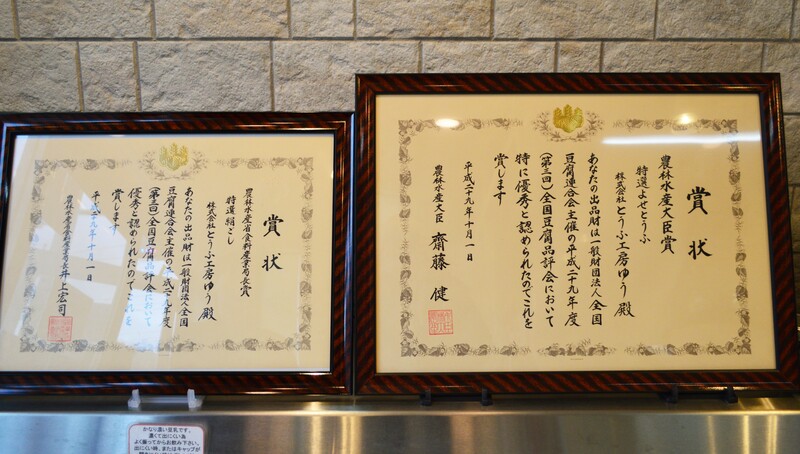 賞状
農林水産省食料産業局長賞
特選絹ごし
株式会社とうふ工房ゆう 殿
あなたの出品財は一般財団法人全国
豆腐連合会主催の平成二十九年度
(第三回)全国豆腐品評会において
優秀と認められたのでこれを
賞します
平成二十九年十月一日
農林水産省食料産業局長 井上宏司
賞状
農林水産大臣賞
特選よせとうふ
株式会社とうふ工房ゆう 殿
あなたの出品財は一般財団法人全国
豆腐連合会主催の平成二十九年度
(第三回)全国豆腐品評会において
特に優秀と認められたのでこれを
賞します
平成二十九年十月一日
農林水産大臣 齋藤 健
かなり濃い豆乳です。
濃くて出にくい為
よく振ってからお飲み下さい。
出にくい時、またはキャップが